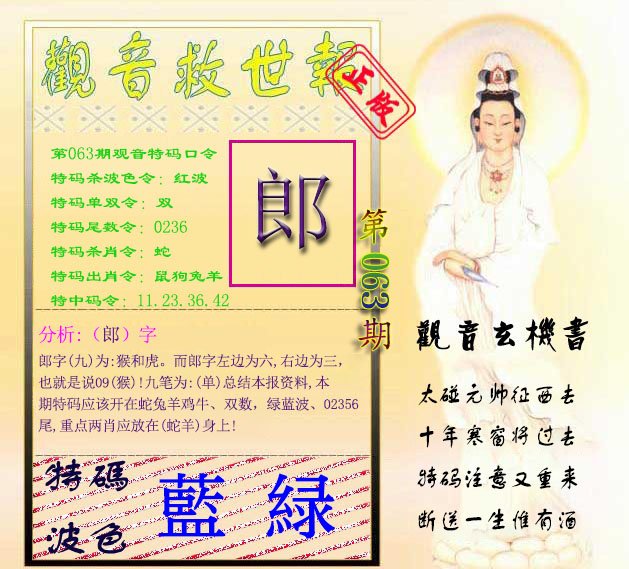 觀音救世報
正版
第063期观音特码口令
特码杀波色令：红波
特码单双令：双
特码尾数令：0236
特码杀肖令：蛇
特码出肖令：鼠狗兔羊
特中码令：11.23.36.42
郎
第063期
分析:（郎）字
郎字(九)为:猴和虎。而郎字左边为六,右边为三,
也就是说09(猴)!九笔为:(单)总结本报资料,本
期特码应该开在蛇兔羊鸡牛、双数，绿蓝波、02356
尾,重点两肖应放在(蛇羊)身上!
特碼
波色
藍 緑
觀音玄機書
太碰元帅征西去
十年寒窗将过去
特码注意又重来
断送一生惟有酒